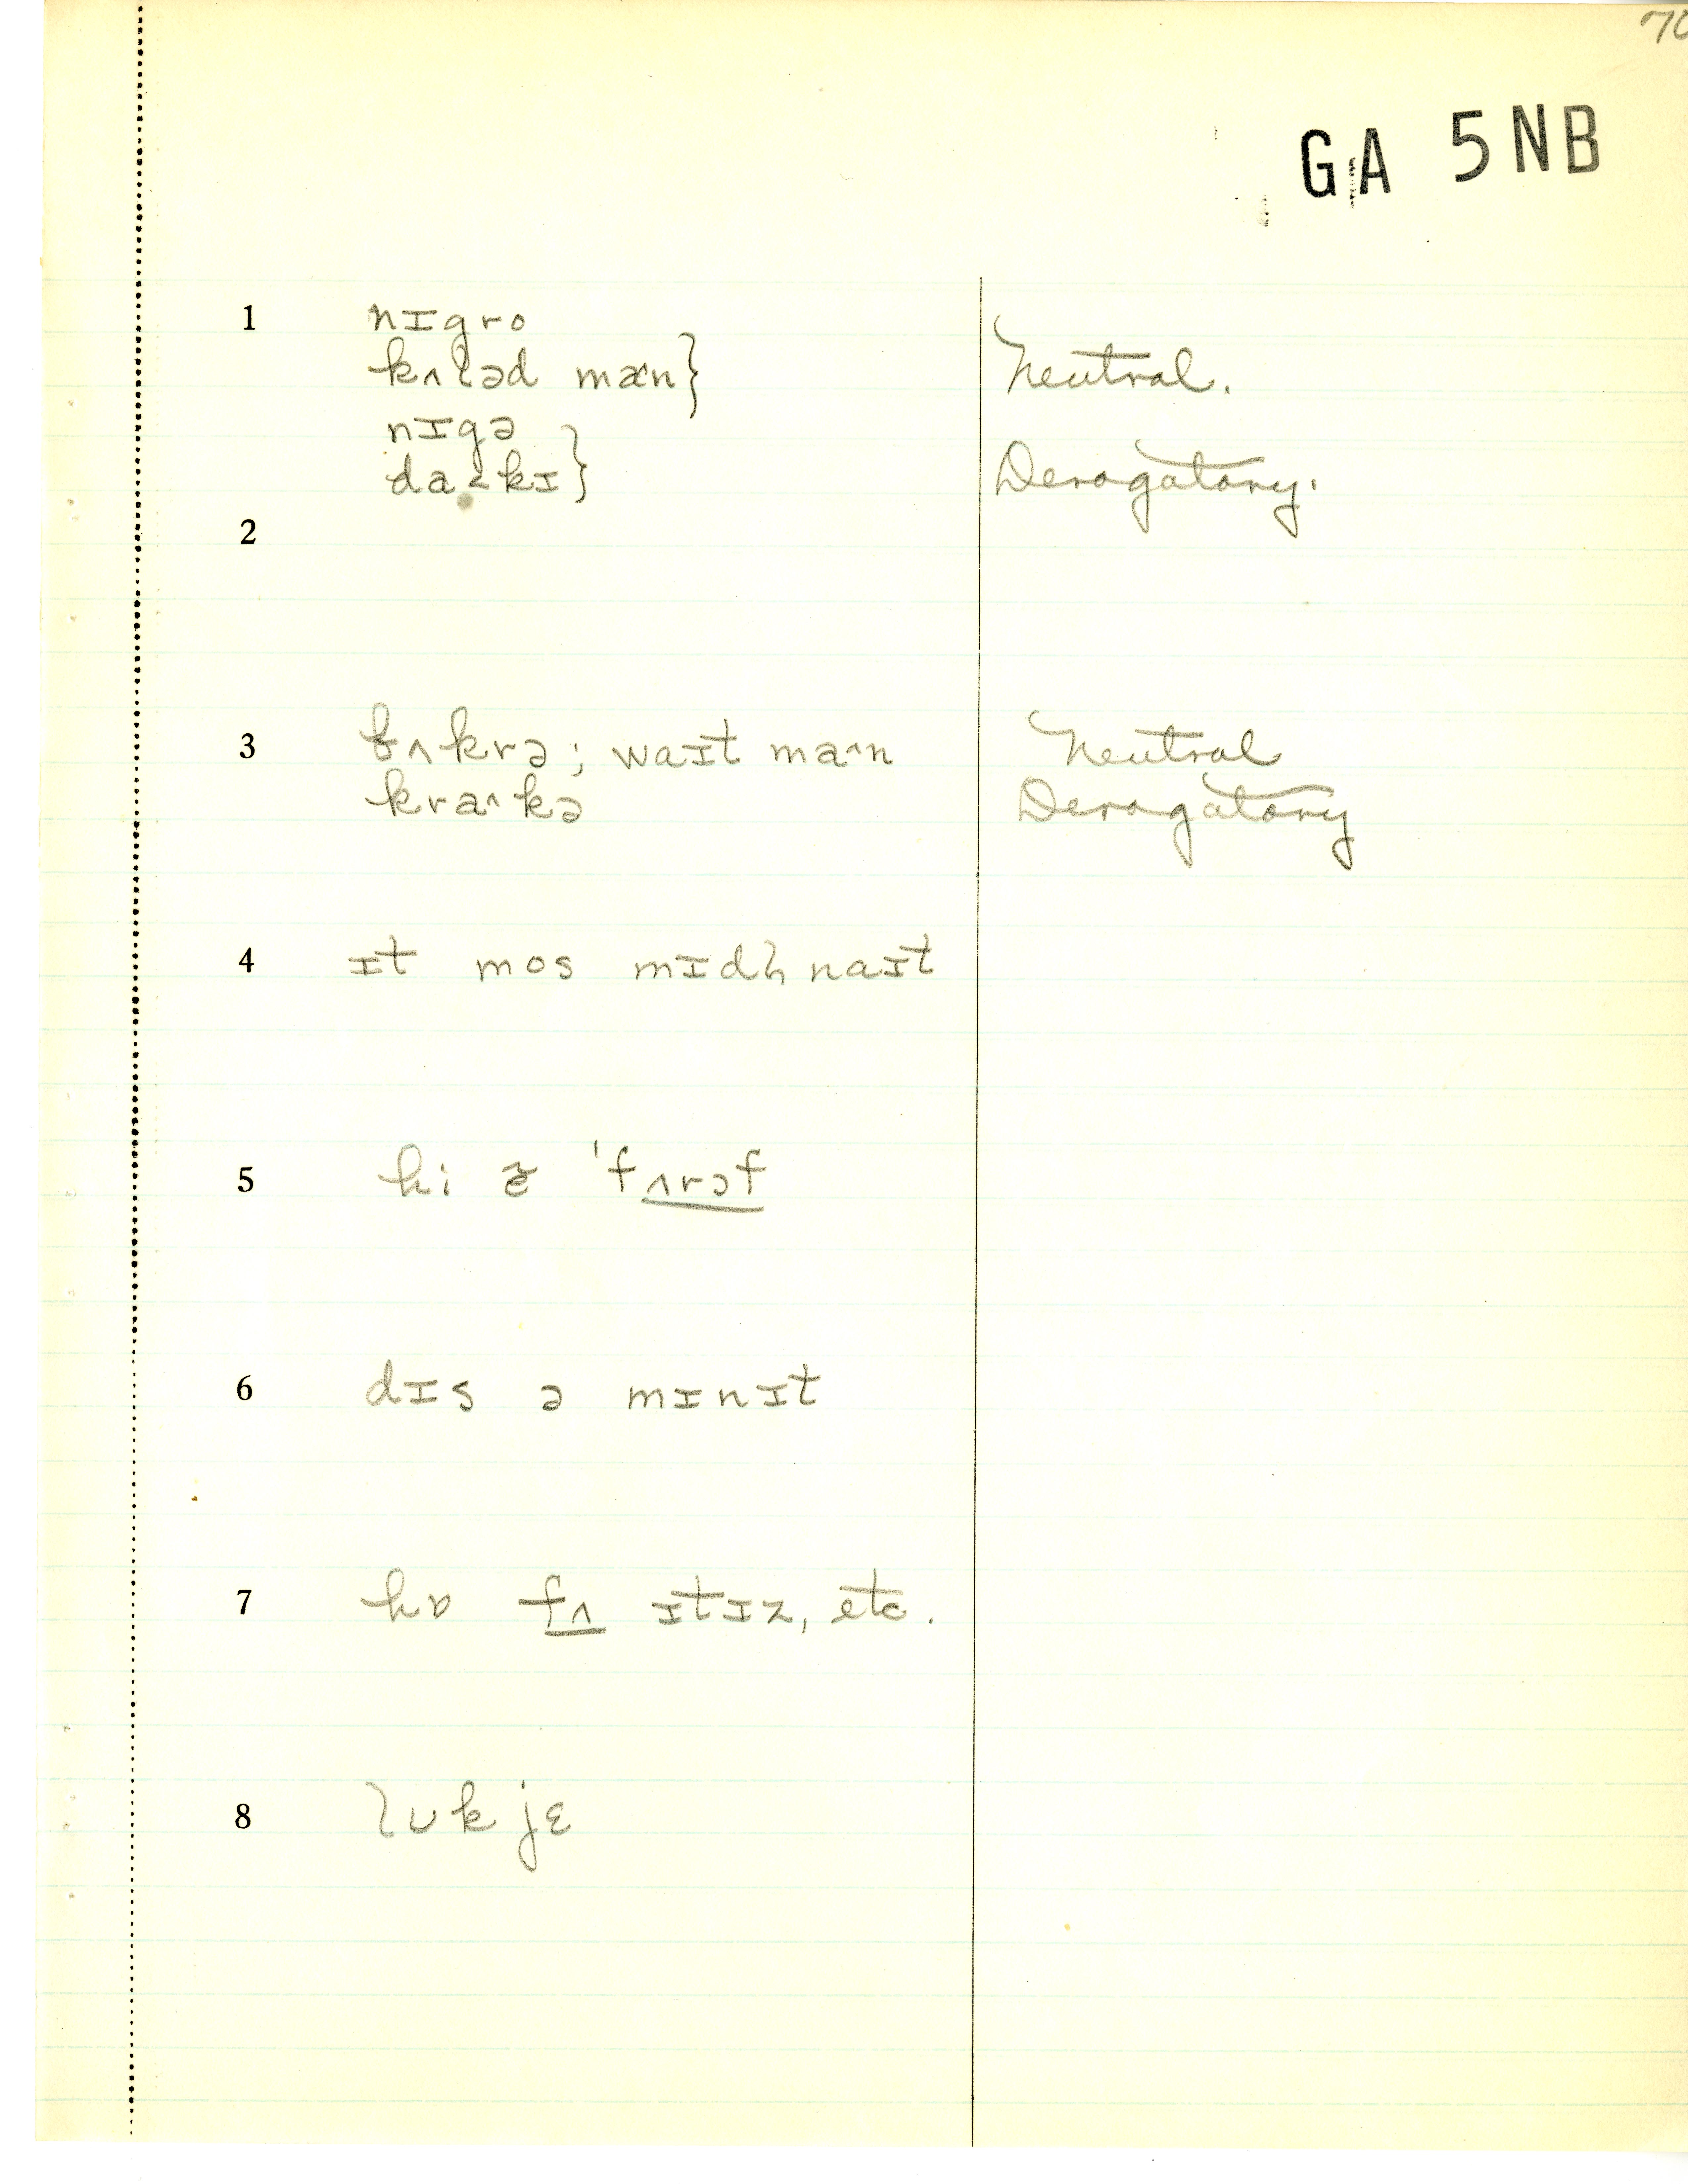 70
GA 5NB
1 nɪgro
kʌləd mæn} Neutral.
nɪgə
da˂kɪ} Derogatory.
2
3 bʌkrə; waɪt ma˄n Neutral
kra˄kə Derogatory
4 ɪt mos mɪdl̩ naɪt
5 hi æ̃ 'fʌrəf
6 dɪs ə mɪnɪt
7 hɒ fʌ ɪtɪz, etc.
8 lʊk jɛ